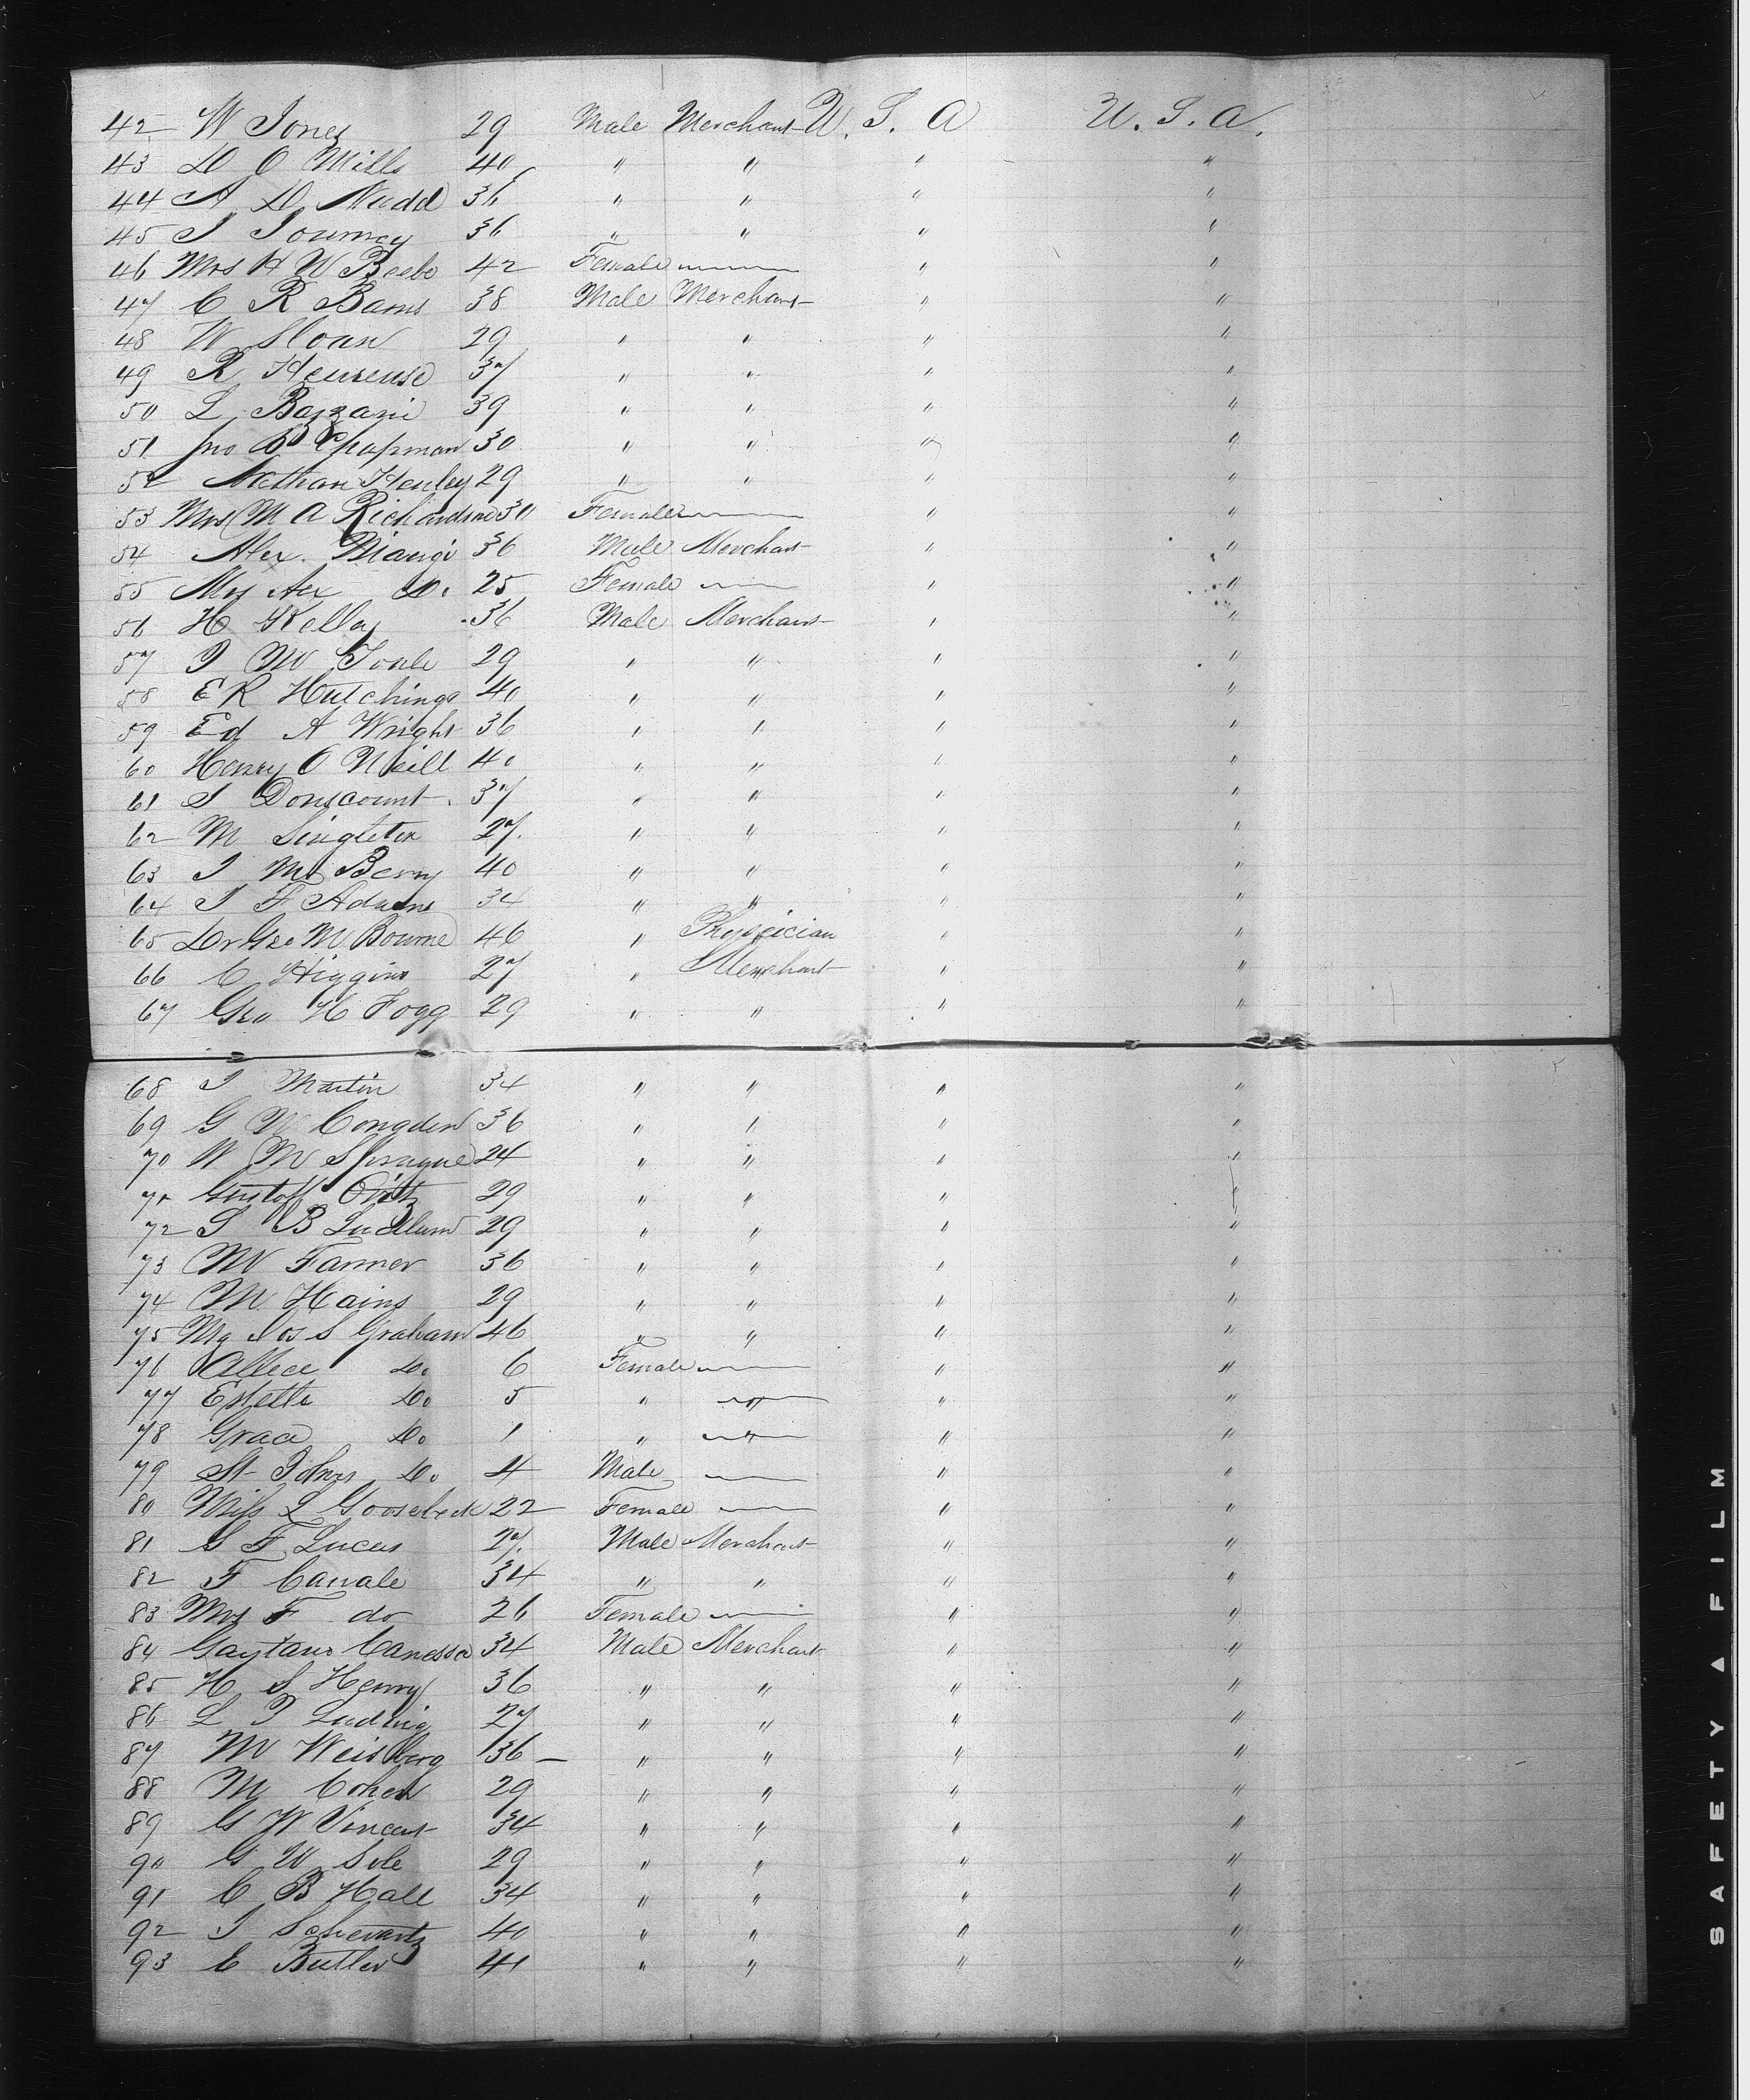 42 W Jones 29 Male Merchant U. S. A U. S. A.
43 D O Mills 40 " " " "
44 A D Nudd 36 " " " "
45 J Journey 36 " " " "
46 Mrs H W Beebe 42 Female " "
47 C R Barns 38 Male Merchant " "
48 W Sloan 29 " " " "
49 R Heureuse 37 " " " "
50 L Bazzani 39 " " " "
51 Jno B Chapman 30 " " " "
52 Nathan Henley 29 " " " "
53 Mrs M A Richardson 30 Female " "
54 Alex 36 Male Merchant " "
55 Mrs Aex Do. 25 Female " "
56 H Kelley 36 Male Merchant " "
57 J W 29 " " " "
58 E R Hutchings 40 " " " "
59 Ed A Wright 36 " " " "
60 Henry O Neill 40 " " " "
61 S 37 " " " "
62 M Singleton 27. " " " "
63 J M Berry 40 " " " "
64 J F Adams 34 " " " "
65 Dr Geo M Bourne 46 " Physician " "
66 C Higgins 27 " Merchant " "
67 Geo H Fogg 29 " " " "
68 J Martin 34 " " " "
69 G W Congden 36 " " " "
70 W M Sprague 24 " " " "
71 Gustoff 29 " " " "
72 S B Ludlum 29 " " " "
73 W Farmer 36 " " " "
74 M Hains 29 " " " "
75 Jos S Graham 46 " " " "
76 Allice Do. 6 Female " "
77 Estelle Do 5 " " " "
78 Grace Do. 1 " " " "
79 St Johns Do. 4 Male " "
80 Miss L Goosebeck 22 Female " "
81 G F Lucas 27. Male Merchant " "
82 F Canale 34 " " " "
83 Mrs F do 26 Female " "
84 Gaytano Canessa 34 Male Merchant " "
85 H S Henry 36 " " " "
86 L J Ludwig 27 " " " "
87 W Weisberg 36 " " " "
88 M Cohen 29 " " " "
89 G W Vincent 34 " " " "
90 G W Sole 29 " " " "
91 C B Hall 34 " " " "
92 J Schwartz 40 " " " "
93 C Butler 41 " " " "
SAFETY ▲ FILM